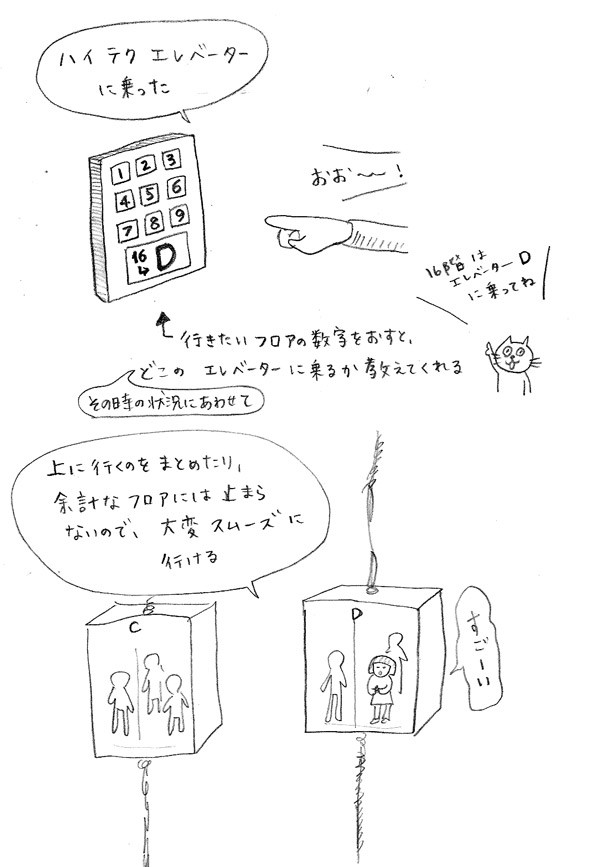 ハイテクエレベーター
に乗った
1 2 3
4 5 6
7 8 9
16
↳ D
おお〜!
16階は
エレベーターD
に乗ってね
行きたいフロアの数字をおすと、
どこの エレベーターに乗るか教えてくれる
その時の状況にあわせて
上に行くのをまとめたり、
余計なフロアには止まら
ないので、大変スムーズに
行ける
C
D
すごーい